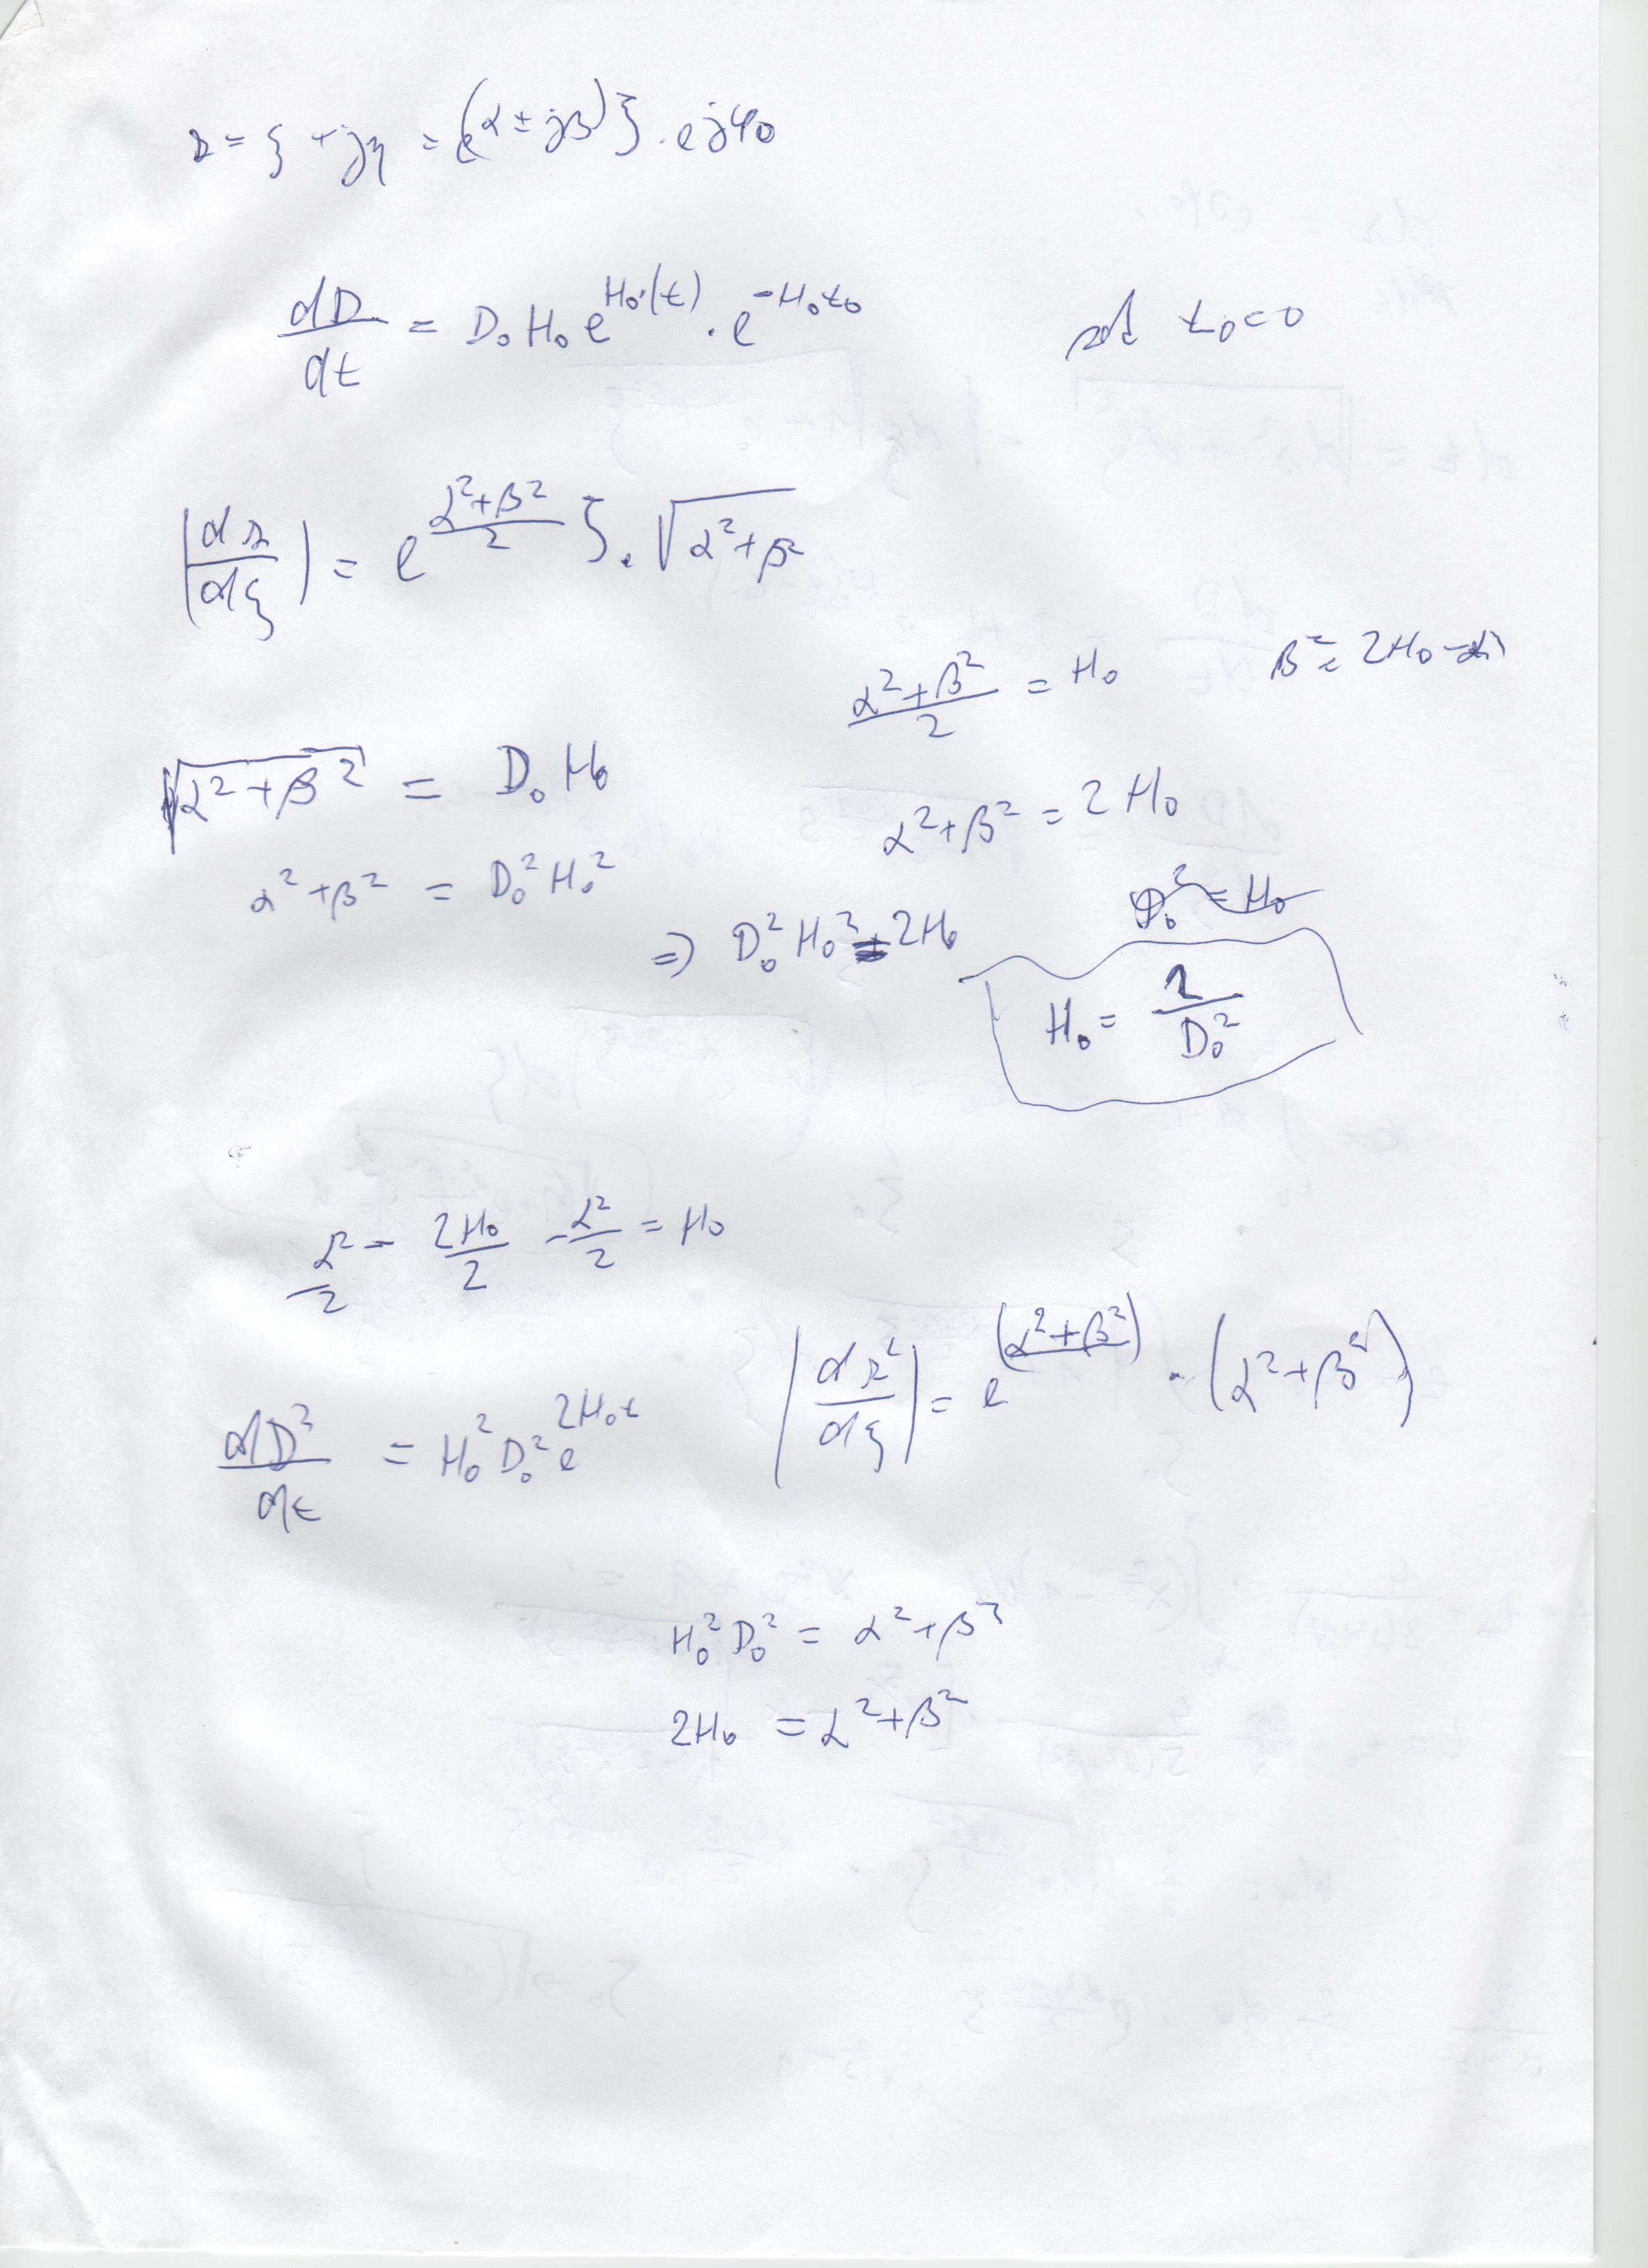 s = ξ + jη = e^{(α ± jβ)ξ} · e^{jφ₀}
dD/dt = D₀ H₀ e^{H₀·(t)} · e^{-H₀t₀}
t₀ = 0
|ds/dξ| = e^{(α²+β²)/2 ξ} · √(α²+β²)
(α²+β²)/2 = H₀ β² = 2H₀ - α²
√(α²+β²) = D₀ H₀
α²+β² = 2H₀
α²+β² = D₀² H₀²
D₀² = H₀
⇒ D₀² H₀² = 2H₀
H₀ = 2/D₀²
α²/2 - 2H₀/2 - α²/2 = H₀
|ds²/dξ| = e^{(α²+β²)} · (α²+β²)
dD²/dt = H₀² D₀² e^{2H₀t}
H₀² D₀² = α²+β²
2H₀ = α²+β²